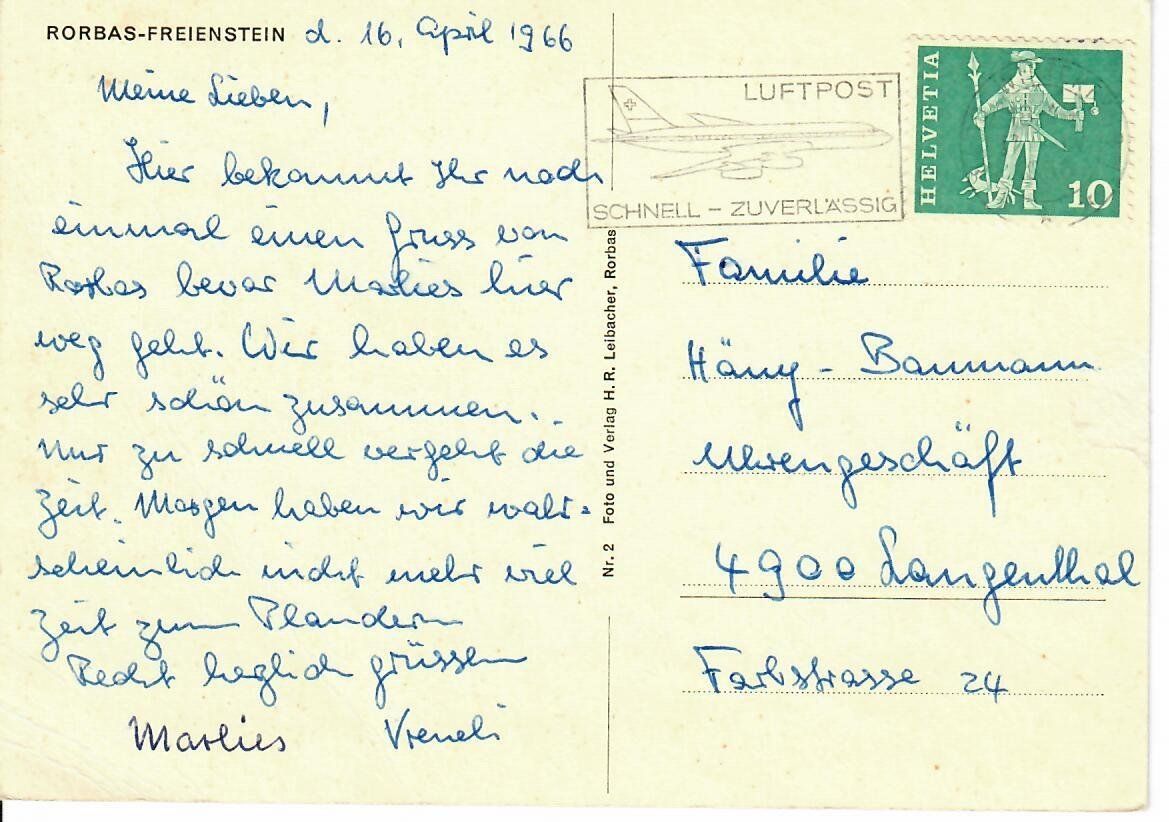 RORBAS-FREIENSTEIN d. 16. April 1966
Meine Lieben,
Hier bekommt Ihr noch
einmal einen Gruss von
Rorbas bevor Marlies hier
weg geht. Wir haben es
sehr schön zusammen.
Nur zu schnell vergeht die
Zeit. Morgen haben wir wahr-
scheinlich nicht mehr viel
Zeit zum Plaudern
Recht herzlich grüssen
Marlies Vreneli
Nr. 2 Foto und Verlag H. R. Leibacher, Rorbas
LUFTPOST
SCHNELL – ZUVERLÄSSIG
HELVETIA
10
Familie
Häny - Baumann
Uhrengeschäft
4900 Langenthal
Farbstrasse 24